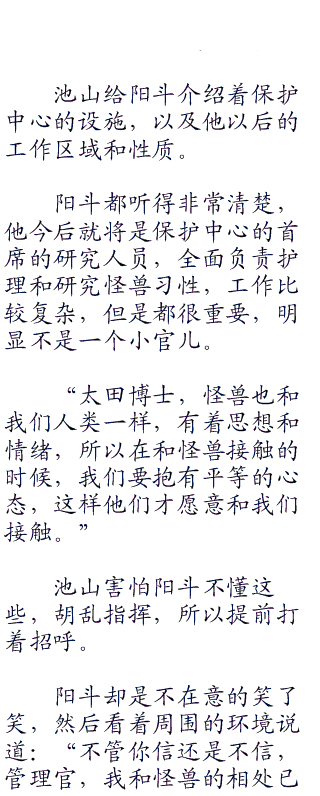 池山给阳斗介绍着保护
中心的设施，以及他以后的
工作区域和性质。
阳斗都听得非常清楚，
他今后就将是保护中心的首
席的研究人员，全面负责护
理和研究怪兽习性，工作比
较复杂，但是都很重要，明
显不是一个小官儿。
“太田博士，怪兽也和
我们人类一样，有着思想和
情绪，所以在和怪兽接触的
时候，我们要抱有平等的心
态，这样他们才愿意和我们
接触。”
池山害怕阳斗不懂这
些，胡乱指挥，所以提前打
着招呼。
阳斗却是不在意的笑了
笑，然后看着周围的环境说
道：“不管你信还是不信，
管理官，我和怪兽的相处已